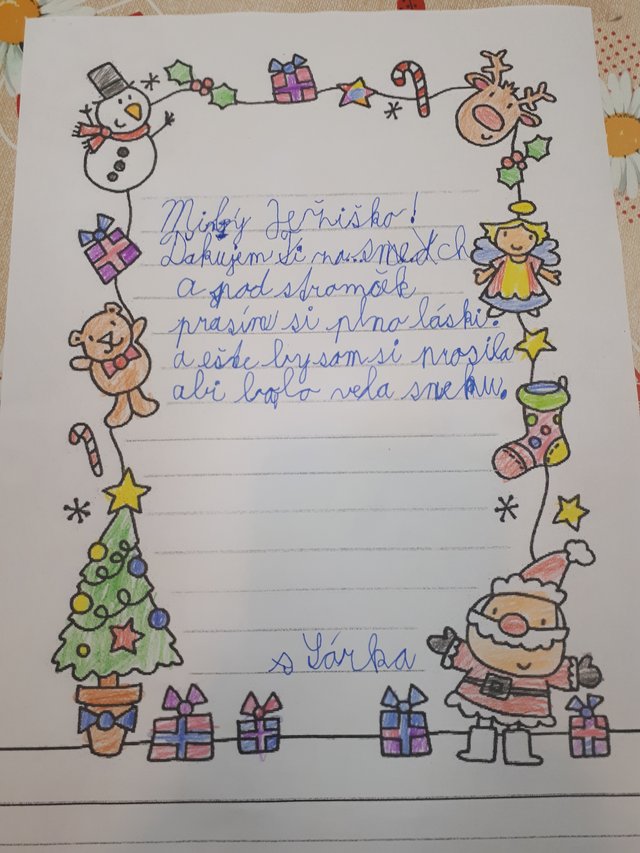 Milý Ježiško!
Ďakujem Ti na smetch
a pod stromček
prasíme si plno láski.
a ešte by som si prosila
abi bolo vela snehu.
Šárka